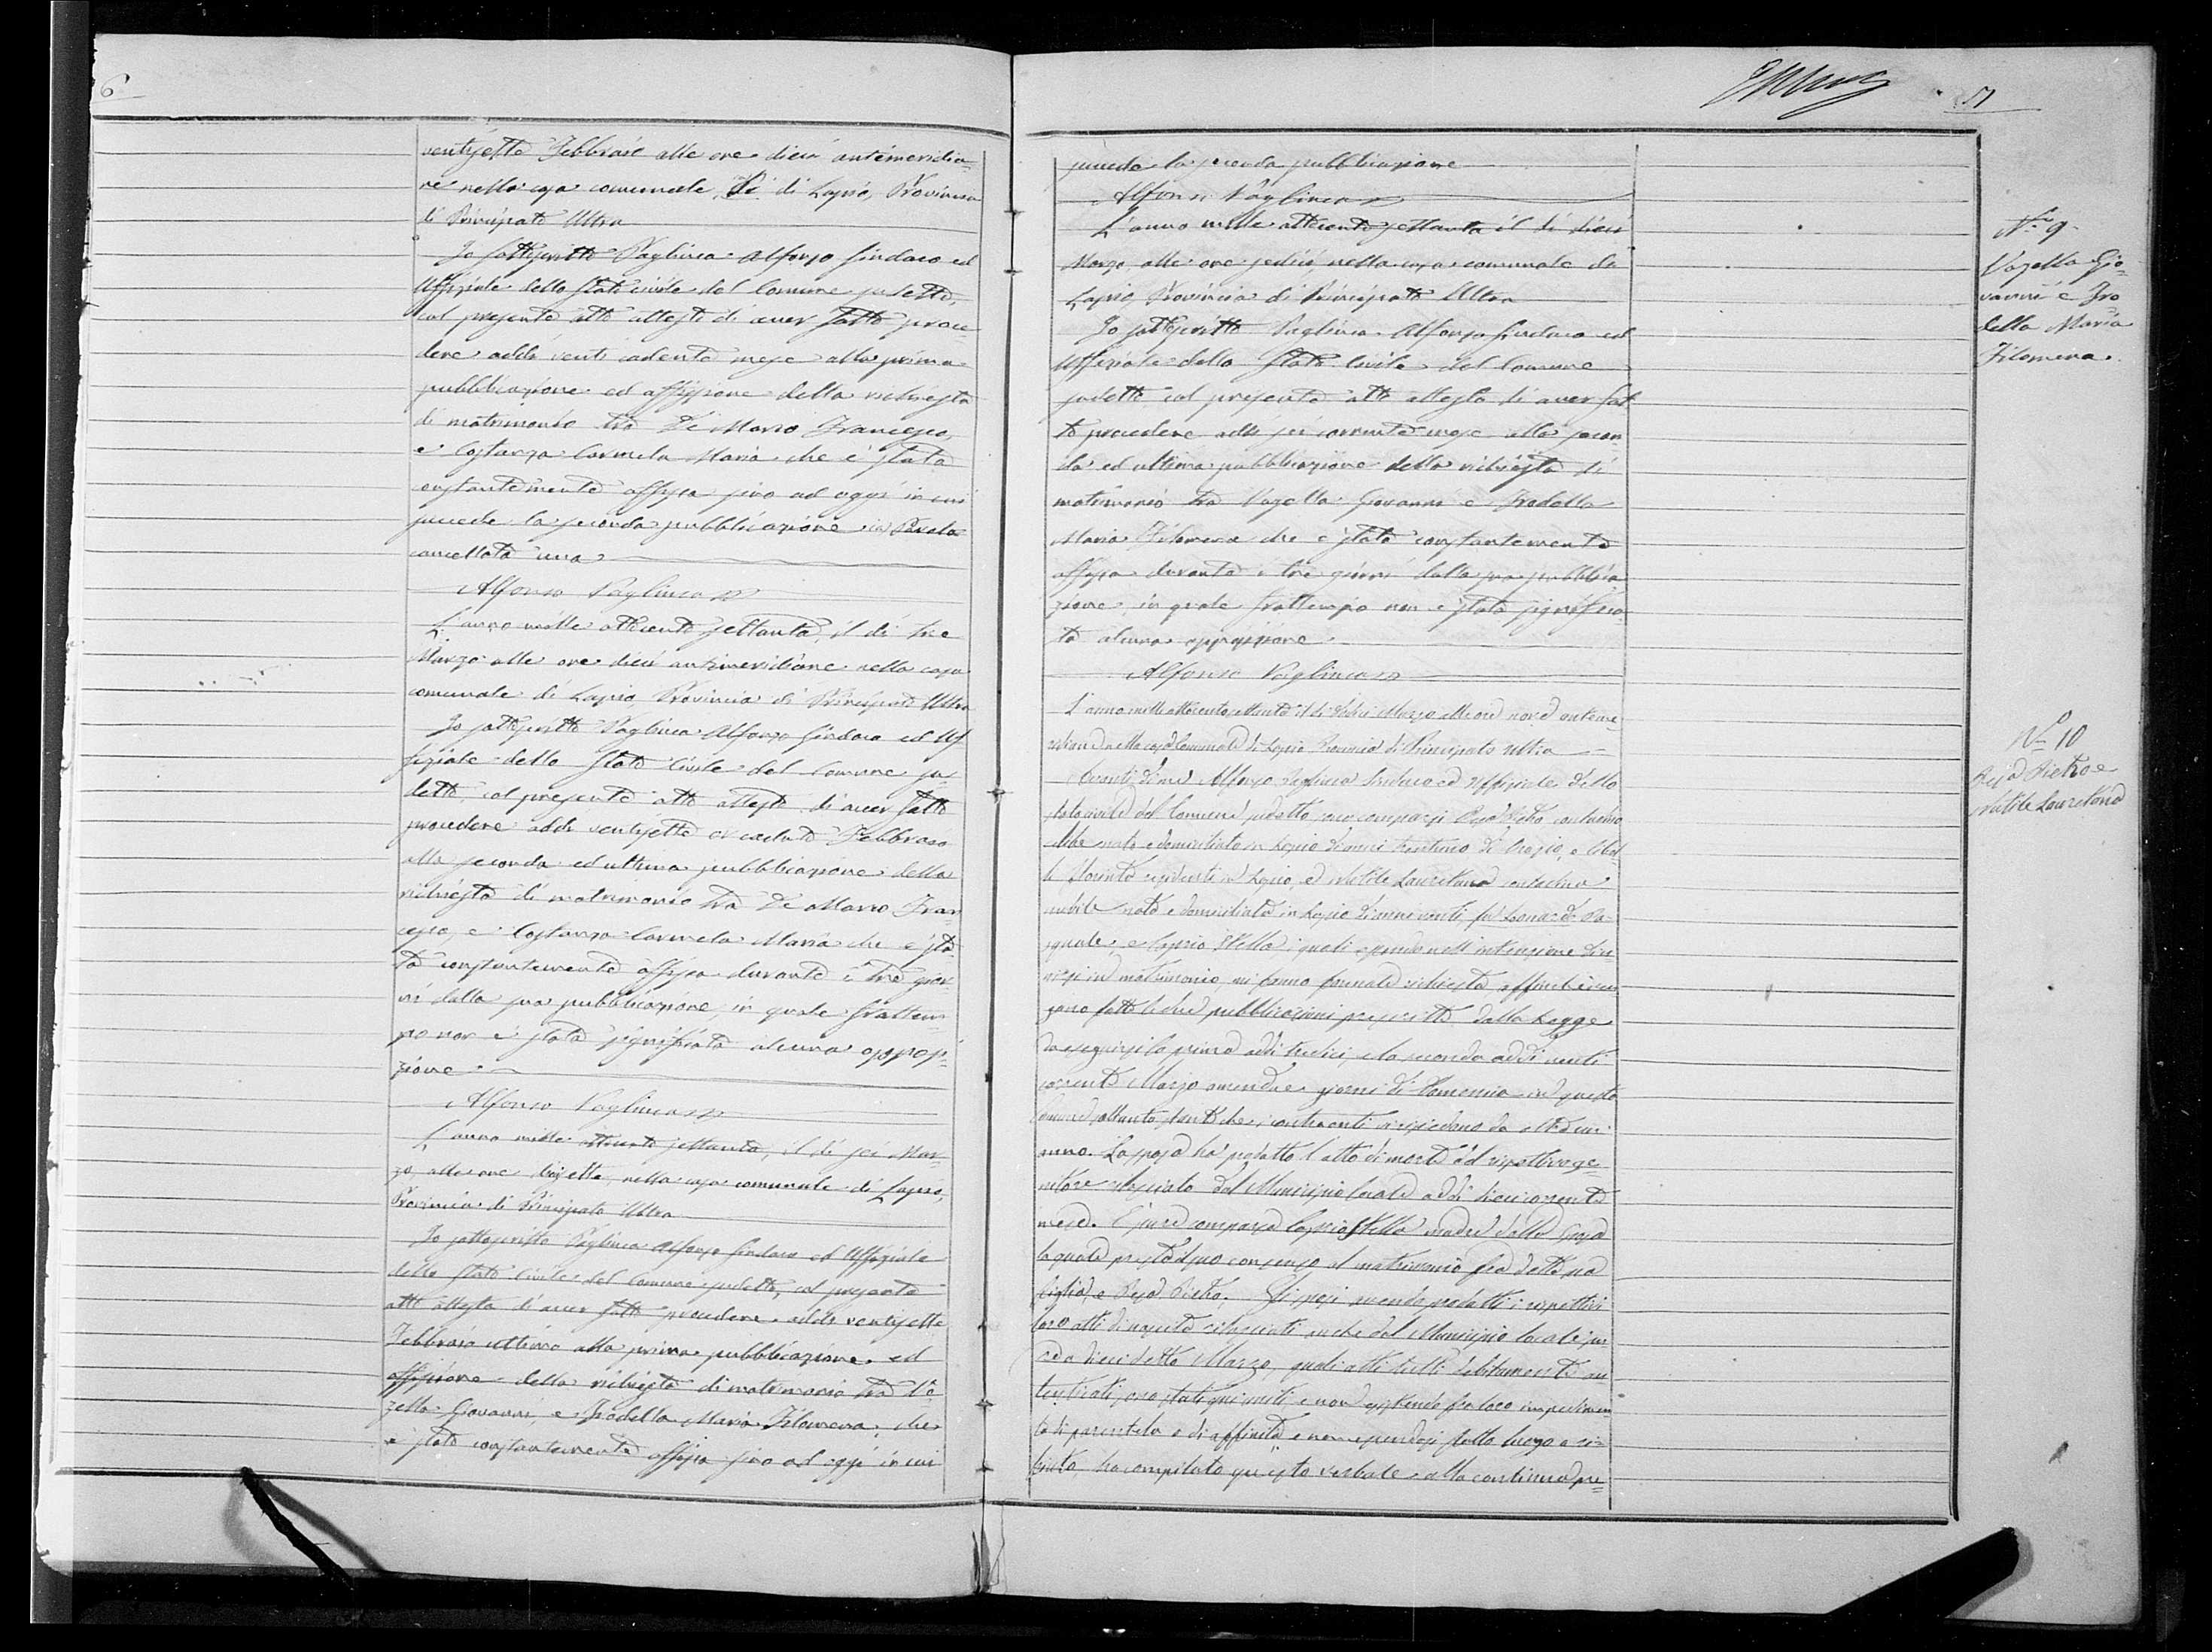 6
ventisette Febbraio alle ore dieci antimeridia-
ne nella casa comunale, di Lapio, Provincia
di Principato Ultra
Io sottoscritto Vaglieca Alfonso Sindaco ed
Uffiziale dello Stato civile del Comune sudetto,
col presente atto attesto di aver fatto proce-
dere addì venti cadente mese alla prima
pubblicazione ed affissione della richiesta
di matrimonio tra De Marco Francesco,
e Costanza Carmela Maria che è stata
constantemente affissa sino ad oggi in cui
succede la seconda pubblicazione. Parola
cancellata una
Alfonso Vaglieca
L'anno mille ottocento settanta, il dì tre
Marzo alle ore dieci antimeridiane nella casa
comunale di Lapio, Provincia di Principato Ultra
Io sottoscritto Vaglieca Alfonso Sindaco ed Uf-
fiziale dello Stato Civile del Comune su-
detto, col presente atto attesto di aver fatto
procedere addì ventisette Febbraio
alla seconda ed ultima pubblicazione della
richiesta di matrimonio tra De Marco Fran-
cesco, e Costanza Carmela Maria che è sta-
ta constantemente affissa durante i tre gior-
ni dalla sua pubblicazione, in quale frattem-
po non è stata significata alcuna opposi-
zione
Alfonso Vaglieca
L'anno mille ottocento settanta, il dì sei Mar-
zo, alle ore dicisette, nella casa comunale di Lapio,
Provincia di Principato Ultra
Io sottoscritto Vaglieca Alfonso Sindaco ed Uffiziale
dello Stato Civile del Comune sudetto, col presente
atto attesto di aver fatto procedere addì ventisette
Febbraio ultimo alla prima pubblicazione ed
affissione della richiesta di matrimonio tra Va-
zella Giovanni, e Trodella Maria Filomena, che
è stata constantemente affissa sino ad oggi in cui
succede la seconda pubblicazione
Alfonso Vaglieca
L'anno mille ottocento settanta il dì dieci
Marzo, alle ore sedici, nella casa comunale di
Lapio, Provincia di Principato Ultra
Io sottoscritto Vaglieca Alfonso Sindaco ed
Uffiziale dello Stato Civile del Comune
sudetto col presente atto attesto di aver fat-
to procedere addì sei corrente mese alla secon-
da ed ultima pubblicazione della richiesta di
matrimonio tra Vazella Giovanni e Trodella
Maria Filomena che è stata constantemente
affissa durante i tre giorni dalla sua pubblica-
zione, in quale frattempo non è stata significa-
ta alcuna opposizione
Alfonso Vaglieca
L'anno mille ottocento settanta il dì Marzo alle ore nove antime-
ridiane nella casa Comunale di Lapio Provincia di Principato Ultra
Avanti di me Alfonso Vaglieca Sindaco ed Uffiziale dello
stato civile del Comune sudetto sono comparsi Pietro contadino
nato e domiciliato in Lapio di anni di Orazio, e
residenti in Lapio, ed Lauretana contadina
nubile nata e domiciliata in Lapio di anni venti, fu di Pa-
squale, e Stella i quali essendo nell'intenzione di
in matrimonio, mi fanno formale richiesta affinchè
fatte le due pubblicazioni prescritte dalla Legge
da eseguirsi la prima addì tredici, e la seconda addì venti
corrente Marzo amendue giorni di Domenica in questo
Comune soltanto stante che i contraenti vi risiedono da oltre un
anno. La sposa ha prodotto l'atto di morte del rispettivo ge-
nitore rilasciato dal Municipio locale addì dieci corrente
mese. È pure comparsa Stella madre della sposa
la quale presta il suo consenso al matrimonio fra detta sua
figlia, e Pietro. Gli sposi avendo prodotti i rispettivi
loro atti di nascita rilasciati anche dal Municipio locale
dieci detto Marzo, quali atti tutti debitamente au-
tenticati, sono stati qui uniti, e non esistendo fra loro impedimen-
to di parentela o di affinità, e non essendosi fatto luogo a ri-
fiuto ho compilato questo verbale alla continua pre-
N. 9.
Vazella Gio-
vanni e Tro-
della Maria
Filomena
N. 10
Pietro e
Lauretana